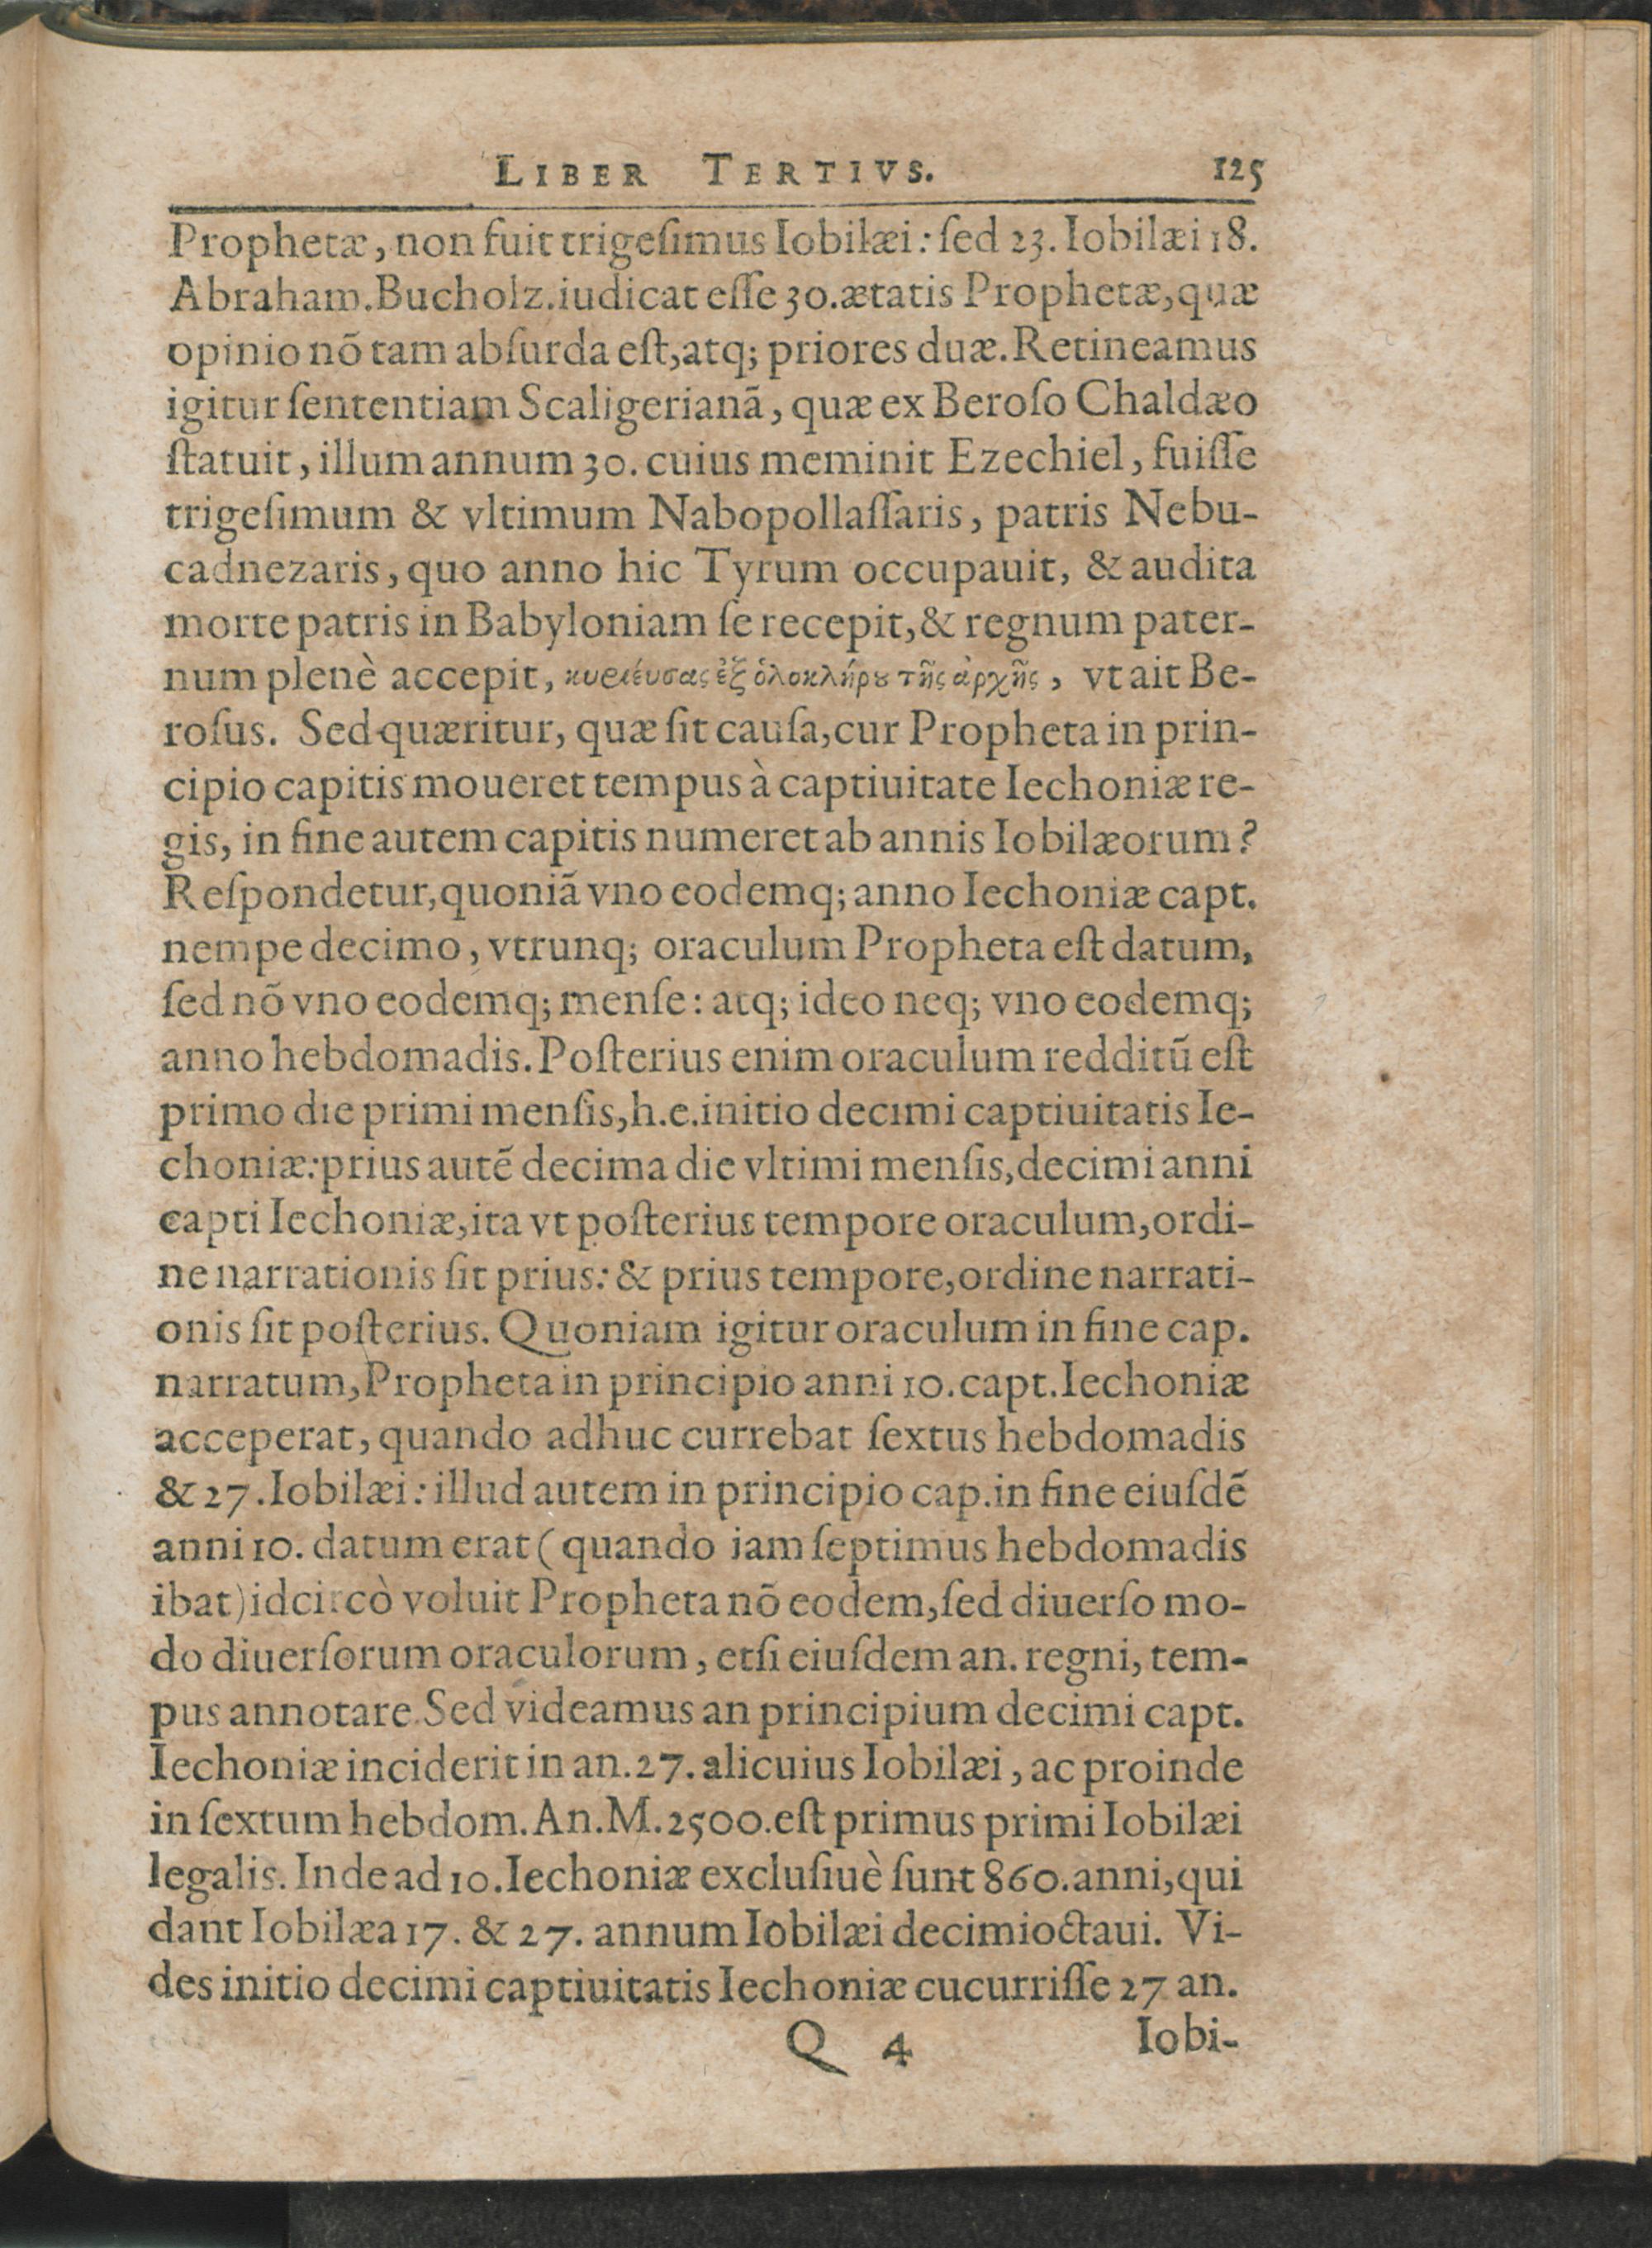 LIBER TERTIVS. 125
Prophetæ, non fuit trigeſimus Iobilæi: ſed 23. Iobilæi 18.
Abraham. Bucholz. iudicat eſſe 30. ætatis Prophetæ, quæ
opinio nõ tam abſurda eſt, atq; priores duæ. Retineamus
igitur ſententiam Scaligerianã, quæ ex Beroſo Chaldæo
ſtatuit, illum annum 30. cuius meminit Ezechiel, fuiſſe
trigeſimum & vltimum Nabopollaſſaris, patris Nebu-
cadnezaris, quo anno hic Tyrum occupauit, & audita
morte patris in Babyloniam ſe recepit, & regnum pater-
num plenè accepit, κυριέυσας ἐξ ὁλοκλήρȣ τῆς ἀρχῆς, vt ait Be-
roſus. Sed quæritur, quæ ſit cauſa, cur Propheta in prin-
cipio capitis moueret tempus à captiuitate Iechoniæ re-
gis, in fine autem capitis numeret ab annis Iobilæorum?
Reſpondetur, quoniã vno eodemq; anno Iechoniæ capt.
nempe decimo, vtrunq; oraculum Propheta eſt datum,
ſed nõ vno eodemq; menſe: atq; ideo neq; vno eodemq;
anno hebdomadis. Poſterius enim oraculum redditũ eſt
primo die primi menſis, h.e. initio decimi captiuitatis Ie-
choniæ: prius autẽ decima die vltimi menſis, decimi anni
capti Iechoniæ, ita vt poſterius tempore oraculum, ordi-
ne narrationis ſit prius: & prius tempore, ordine narrati-
onis ſit poſterius. Quoniam igitur oraculum in fine cap.
narratum, Propheta in principio anni 10. capt. Iechoniæ
acceperat, quando adhuc currebat ſextus hebdomadis
& 27. Iobilæi: illud autem in principio cap. in fine eiuſdẽ
anni 10. datum erat (quando iam ſeptimus hebdomadis
ibat) idcircò voluit Propheta nõ eodem, ſed diuerſo mo-
do diuerſorum oraculorum, etſi eiuſdem an. regni, tem-
pus annotare. Sed videamus an principium decimi capt.
Iechoniæ inciderit in an. 27. alicuius Iobilæi, ac proinde
in ſextum hebdom. An. M. 2500. eſt primus primi Iobilæi
legalis. Inde ad 10. Iechoniæ excluſiuè ſunt 860. anni, qui
dant Iobilæa 17. & 27. annum Iobilæi decimioctaui. Vi-
des initio decimi captiuitatis Iechoniæ cucurriſſe 27 an.
Q 4 Iobi-